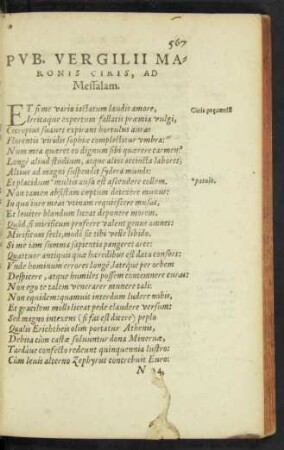 567
PVB. VERGILII MA-
RONIS CIRIS, AD
Messalam.
ET si me vario iactatum laudis amore,
Irritaque expertum fallacis præmia vulgi,
Cecropius suaves expirans hortulus auras
Florentis viridis sophiæ complectitur vmbra:
Num mea quæret eo dignum sibi quærere carmen?
Longè aliud studium, atque alios accincta labores;
Altius ad magni suspendit sydera mundi:
Et placidum* multis ausa est ascendere collem.
Non tamen absistam cœptum detexere munus:
In quo iure meas vtinam requiescere musas,
Et leuiter blandum liceat deponere morem.
Quòd si mirificum proferre valent genus omnes:
Mirificum sedi, modò sit tibi velle libido.
Si me iam summa sapientia pangeret arce:
Quattuor antiquis quæ hæredibus est data consors:
Vnde hominum errores longè latéque per orbem
Despicere, atque humiles possem contemnere curas:
Non ego te talem venerarer munere tali:
Non equidem: quamuis interdum ludere nobis,
Et gracilem molli liceat pede claudere versum:
Sed magno intexens (si fas est dicere) peplo
Qualis Erichtheis olim portatur Athenis,
Debita cùm castæ soluuntur dona Mineruæ,
Tardáue confecto redeunt quinquennia lustro:
Cùm leuis alterno Zephyrus concrebuit Euro:
N 4